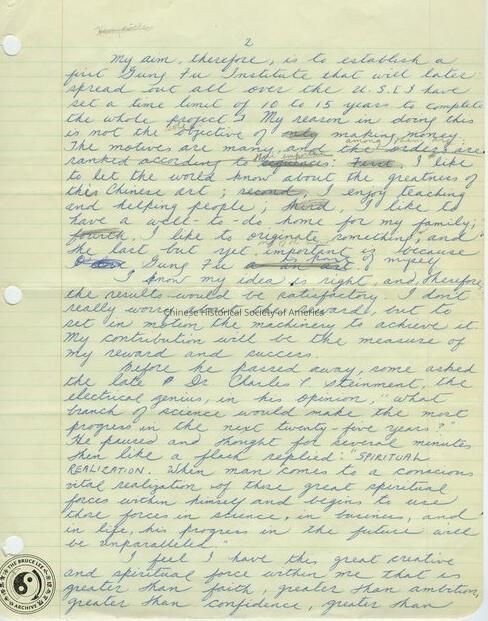 2
My aim, therefore, is to establish a
first Gung Fu Institute that will later
spread out all over the U.S. I have
set a time limit of 10 to 15 years to complete
the whole project. My reason in doing this
is not the sole objective of making money.
The motives are many and among them are
ranked according to I like
to let the world know about the greatness of
this Chinese art; second, I enjoy teaching
and helping people; third, I like to
have a well-to-do home for my family;
fourth, I like to originate something, and
the last but yet important is because
Gung Fu is part of myself
I know my idea is right, and, therefore,
the results would be satisfactory. I don't
really worry about the reward, but to
set in motion the machinery to achieve it.
My contribution will be the measure of
my reward and success.
Before he passed away, some asked
the late Dr. Charles P. Steinment, the
electrical genius, in his opinion, "what
branch of science would make the most
progress in the next twenty-five years?"
He paused and thought for several minutes
then like a flash replied: "SPIRITUAL
REALIZATION. When man comes to a conscious
vital realization of those great spiritual
forces within himself and begins to use
those forces in science, in business, and
in life, his progress in the future will
be unparalleled"
I feel I have this great creative
and spiritual force within me that is
greater than faith, greater than ambition,
greater than confidence, greater than
Chinese Historical Society of America
THE BRUCE LEE
ARCHIVE